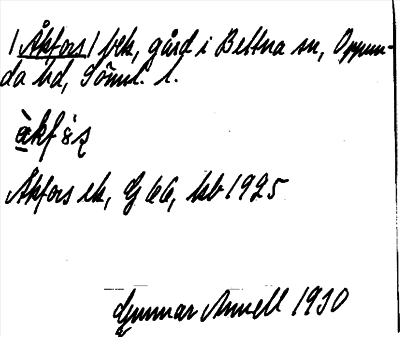 / Åkfors / frk, gård i Bettna sn, Oppun-
da hd, Söml. l.
Åkfors ek, G 66, kb 1925
Gunnar Annell 1930